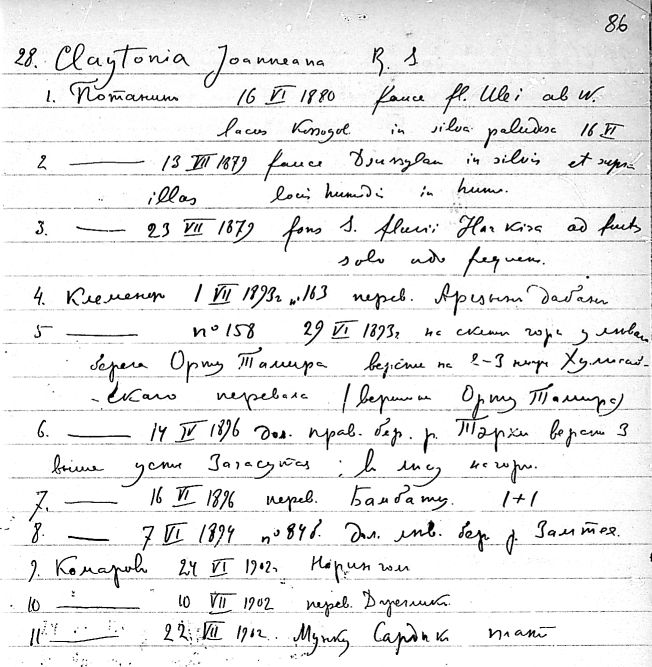 86
28. Claytonia Joanneana R. S
1. Потанинъ 16 VI 1880 fauce fl. Ulei ab W.
lacus Kossogol in silva paludosa 16 VI
2 —— 13 VII 1879 fauce in silvis et supra
illas locis humidis in humo.
3. —— 23 VII 1879 fons S. fluvii Harkira ad
solo udo frequens.
4. Клеменц 1 VII 1893г №163 перев. дабан
5 —— no 158 29 VI 1893г на склоне горы у левого
берега Орту Тамира верстах на 2-3 ниже
скаго перевала (вершина Орту Тамира)
6. —— 14 IV 1896 дол. прав. бер. р. Тэрхи верст 3
выше устья ; в лесу на горе.
7. —— 16 VI 1896 перев. Бамбату. 1+1
8. —— 7 VI 1894 no 84б. дол. лев. бер. р.
9. Комаровъ 24 VI 1902г Норин гол
10 —— 10 VII 1902 перев.
11 —— 22 VII 1902. Мунку Сардык